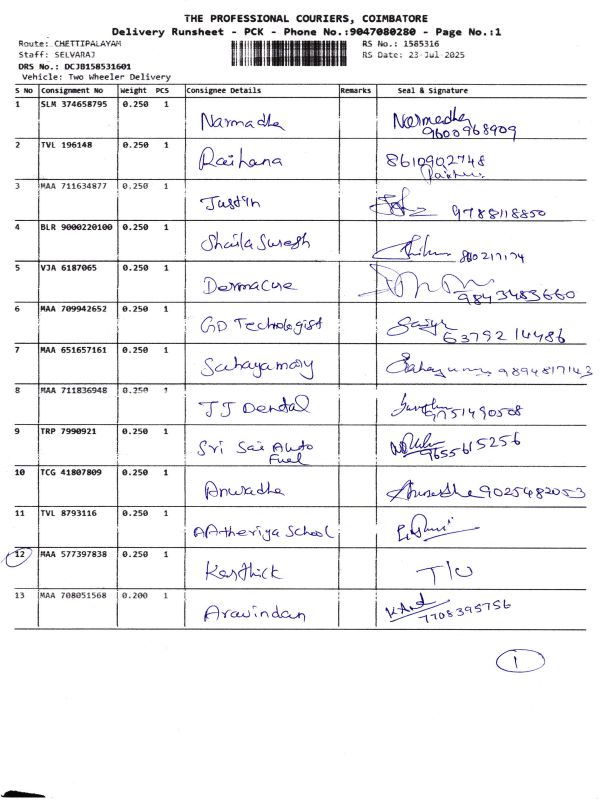 THE PROFESSIONAL COURIERS, COIMBATORE
Delivery Runsheet - PCK - Phone No.:9047080280 - Page No.:1
Route: CHETTIPALAYAM RS No.: 1585316
Staff: SELVARAJ RS Date: 23-Jul-2025
DRS No.: DCJB158531601
Vehicle: Two Wheeler Delivery
S No Consignment No Weight PCS Consignee Details Remarks Seal & Signature
1 SLM 374658795 0.250 1
Narmadha Narmadha
9600968909
2 TVL 196148 0.250 1
Raihana 8610902748
3 MAA 711634877 0.250 1
Justin 9788118850
4 BLR 9000220100 0.250 1
Shaila Suresh
5 VJA 6187065 0.250 1
Dermacure
9843483660
6 MAA 709942652 0.250 1
GD Technologist
6379214486
7 MAA 651657161 0.250 1
Sahayamary 9894817143
8 MAA 711836948 0.250 1
JJ Dental
9751490508
9 TRP 7990921 0.250 1
Sri Sai Auto
Fuel 9655615256
10 TCG 41807809 0.250 1
Anuradha Anuradha 9025482053
11 TVL 8793116 0.250 1
School
12 MAA 577397838 0.250 1
Karthick T/U
13 MAA 708051568 0.200 1
Aravindan
7708395756
1